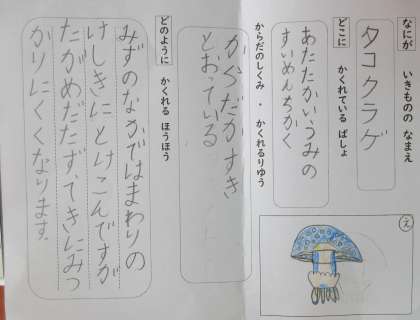 なにが いきものの なまえ
タコクラゲ
どこに かくれている ばしょ
あたたかいうみの
すいめんちかく
からだのしくみ・かくれるりゆう
からだがすき
とおっている
どのように かくれる ほうほう
みずのなかではまわりの
けしきにとけこんですが
たがめだたず、てきにみつ
かりにくくなります。
え